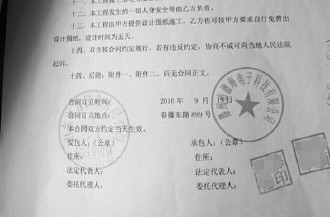 十二、本工程发生的一切人身安全等由乙方负责。
十三、本工程由甲方提供设计图纸施工，乙方也可按甲方要求自行免费出
设计图纸，设计时间为五天。
十四、双方按合同约定履行，若有违反约定，协商不成可向当地人民法院
起诉。
十四、后附：附件一、附件二。后无合同正文。
合同订立时间： 2016 年 9 月 19 日
合同订立地点： 春藤东路 899 号
本合同双方约定当天生效。
发包人：（公章） 承包人：（公章）
住所： 住所：
法定代表人： 法定代表人：
委托代理人： 委托代理人：
电子科技有限公司
印